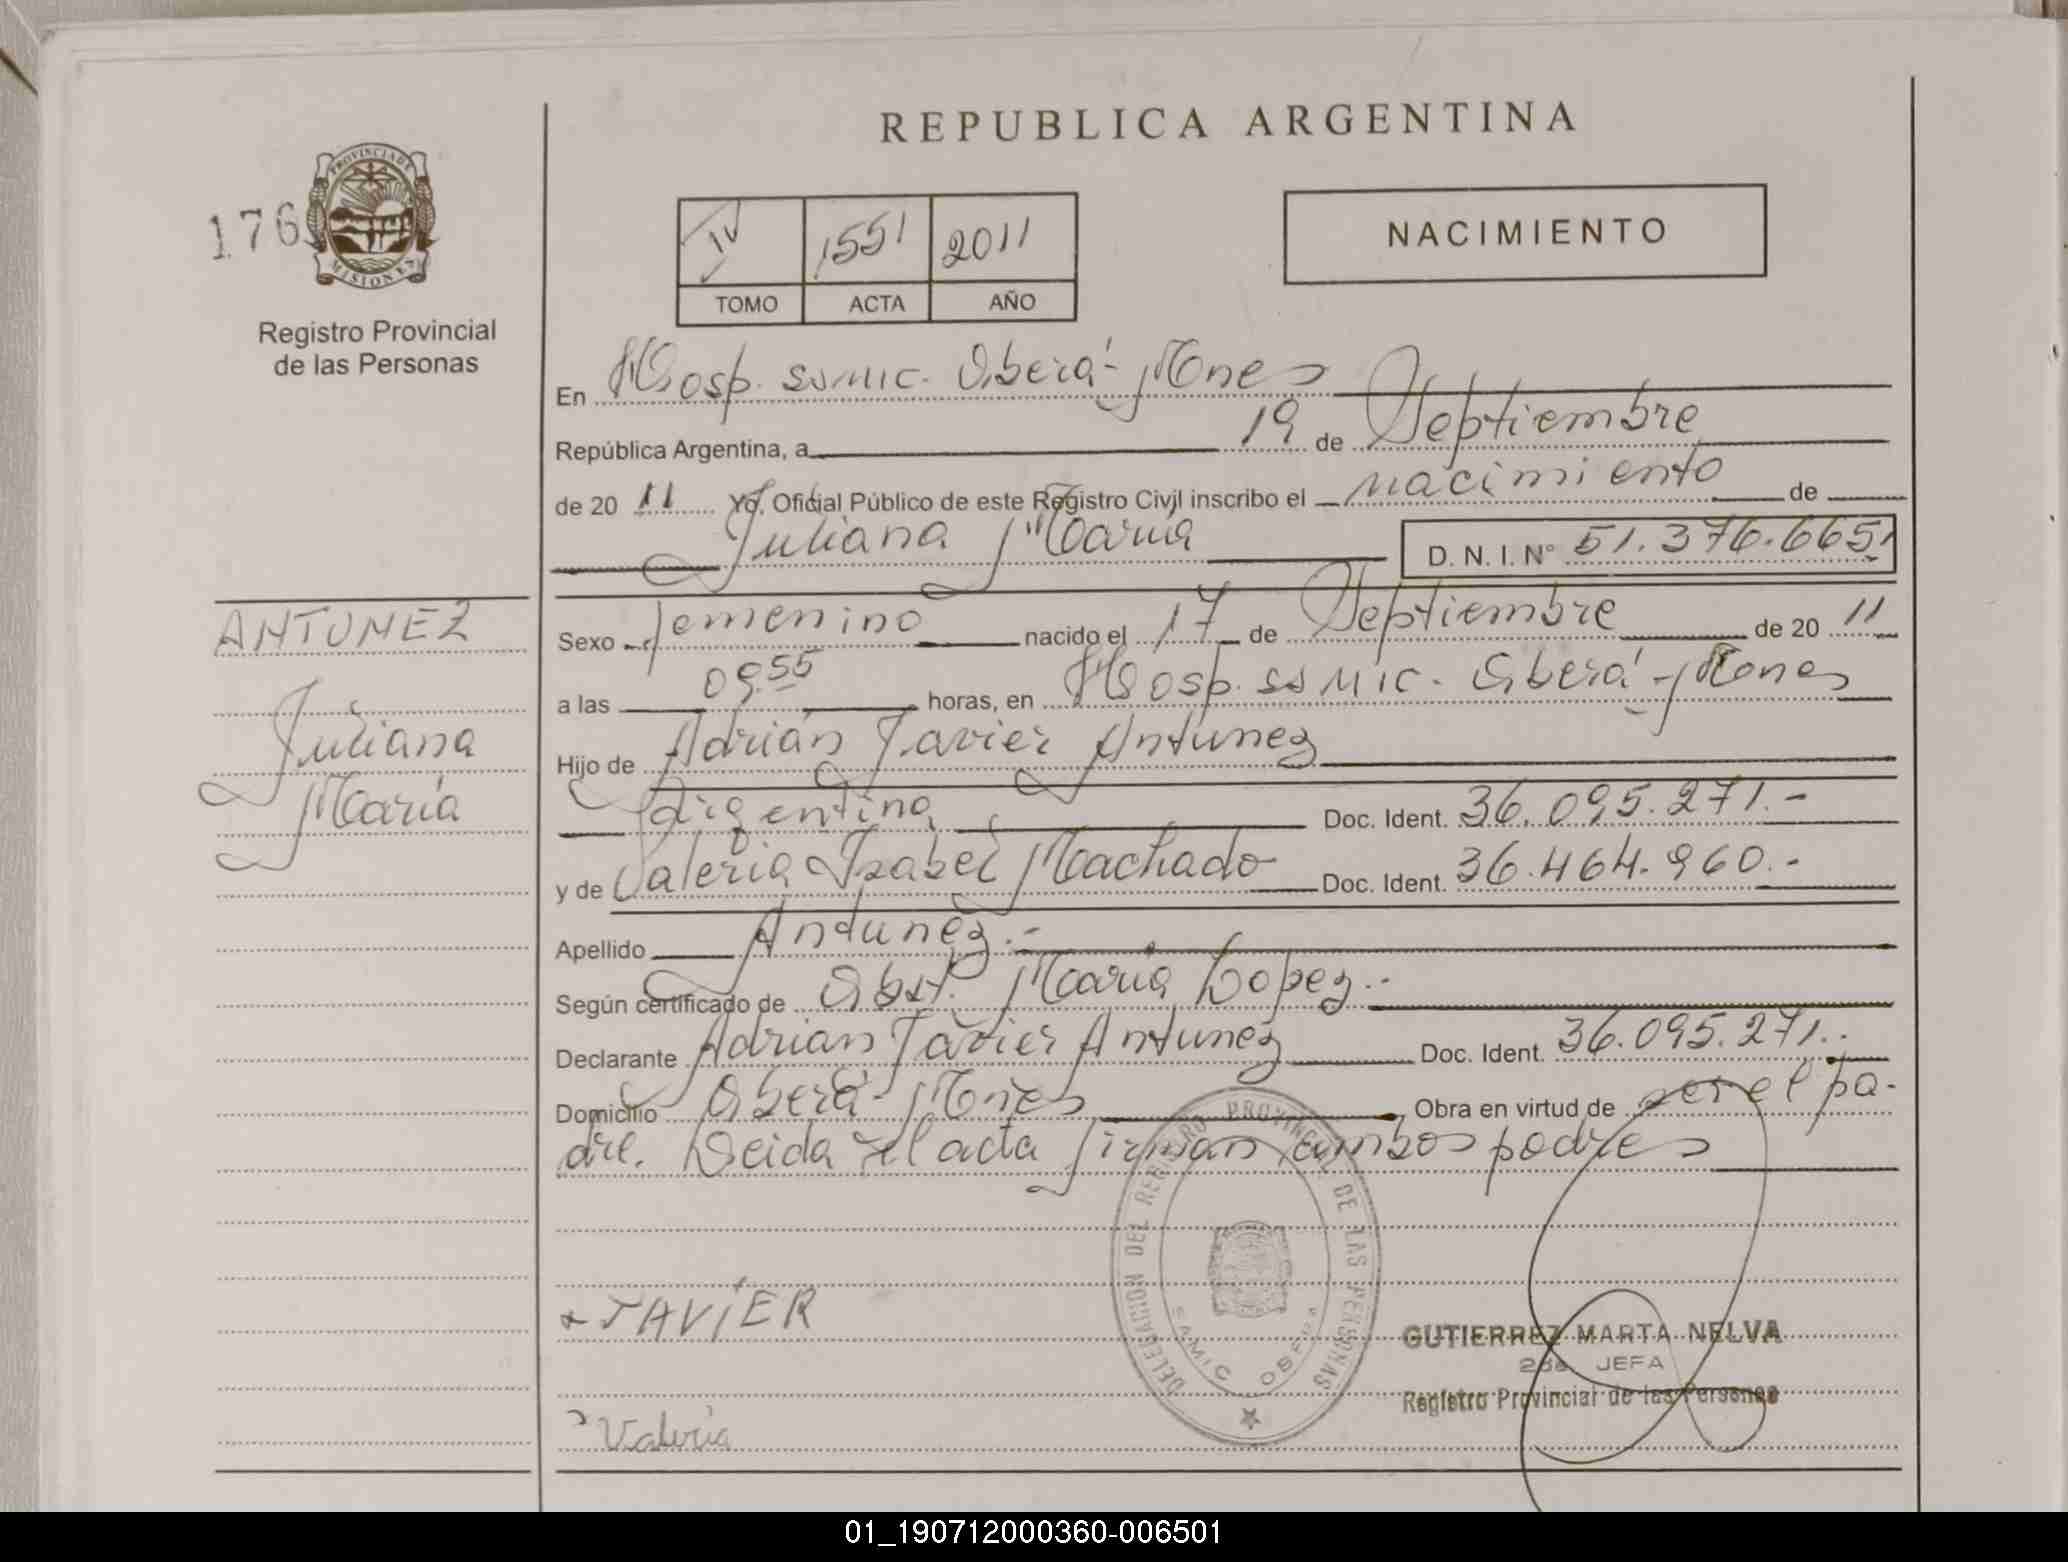 REPUBLICA ARGENTINA
176
PROVINCIA DE
MISIONES
Registro Provincial
de las Personas
IV 1551 2011
TOMO ACTA AÑO
NACIMIENTO
En Hosp. SAMIC. Oberá - Mnes
República Argentina, a 19 de Septiembre
de 20 11 Yo, Oficial Público de este Registro Civil inscribo el nacimiento de
Juliana María D. N. I. N° 51.376.665
ANTUNEZ
Juliana
María
Sexo femenino nacido el 17 de Septiembre de 20 11
a las 09.55 horas, en Hosp. SAMIC. Oberá - Mnes
Hijo de Adrián Javier Antunez
Argentina Doc. Ident. 36.095.271.-
y de Valeria Isabel Machado Doc. Ident. 36.464.960.-
Apellido Antunez.-
Según certificado de Obst. María Lopez.-
Declarante Adrian Javier Antunez Doc. Ident. 36.095.271.-
Domicilio Oberá - Mnes Obra en virtud de ser el pa-
dre. Leida el acta firman ambos padres
JAVIER
Valeria
DELEGACION DEL REGISTRO PROVINCIAL DE LAS PERSONAS
SAMIC OBERA
GUTIERREZ MARTA NELVA
2da JEFA
Registro Provincial de las Personas
01_190712000360-006501